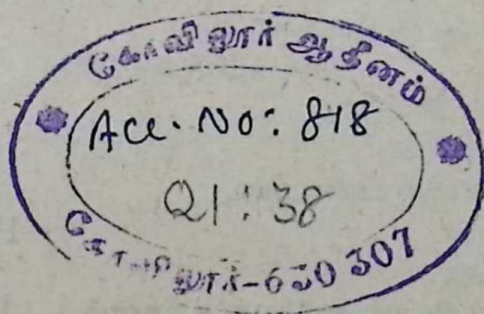 கோவிலூர் ஆதீனம்
Acc. No: 818
Q1:38
கோவிலூர்-630 307